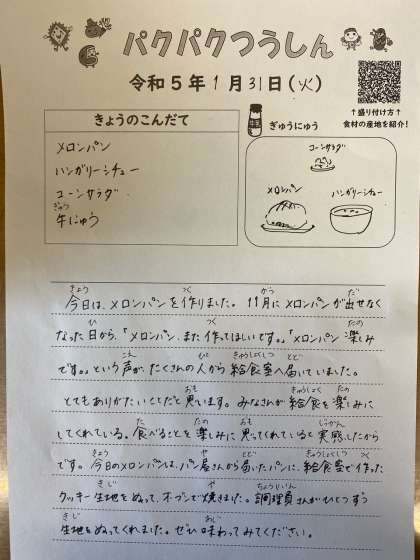 パクパクつうしん
令和5年1月31日(火)
↑盛り付け方↑
食材の産地を紹介!
きょうのこんだて
メロンパン
ハンガリーシチュー
コーンサラダ
牛にゅう
ぎゅう
ぎゅうにゅう
コーンサラダ
メロンパン
ハンガリーシチュー
今日は、メロンパンを作りました。11月にメロンパンが出せなく
なった日から、「メロンパン、また作ってほしいです。」「メロンパン楽しみ
です。」という声が、たくさんの人から給食室へ届いていました。
とてもありがたいことだと思います。みなさんが給食を楽しみに
してくれている。食べることを楽しみに思ってくれていると実感したから
です。今日のメロンパンは、パン屋さんから届いたパンに、給食室で作った
クッキー生地をぬって、オーブンで焼きました。調理員さんがひとつずつ
生地をぬってくれました。ぜひ味わってみてください。